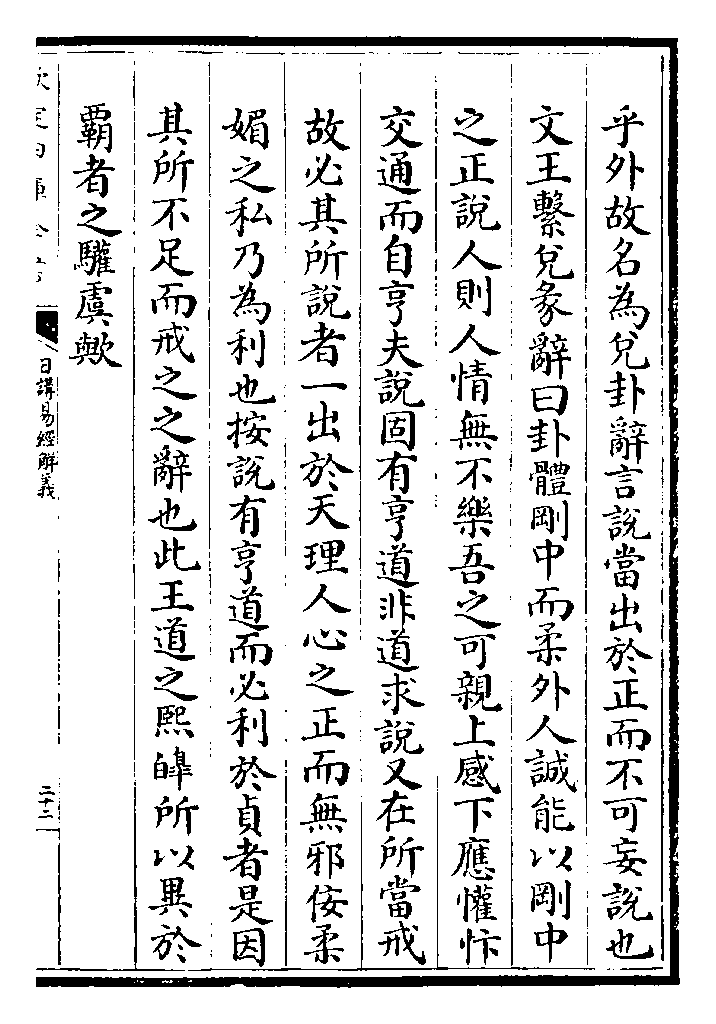 乎外故名為兌卦辭言說當出於正而不可妄說也
文王繫兌彖辭曰卦體剛中而柔外人誠能以剛中
之正說人則人情無不樂吾之可親上感下應懽忭
交通而自亨夫說固有亨道非道求說又在所當戒
故必其所說者一出於天理人心之正而無邪佞柔
媚之私乃為利也按說有亨道而必利於貞者是因
其所不足而戒之之辭也此王道之熙皡所以異於
覇者之驩虞歟
日講易經解義
二十二